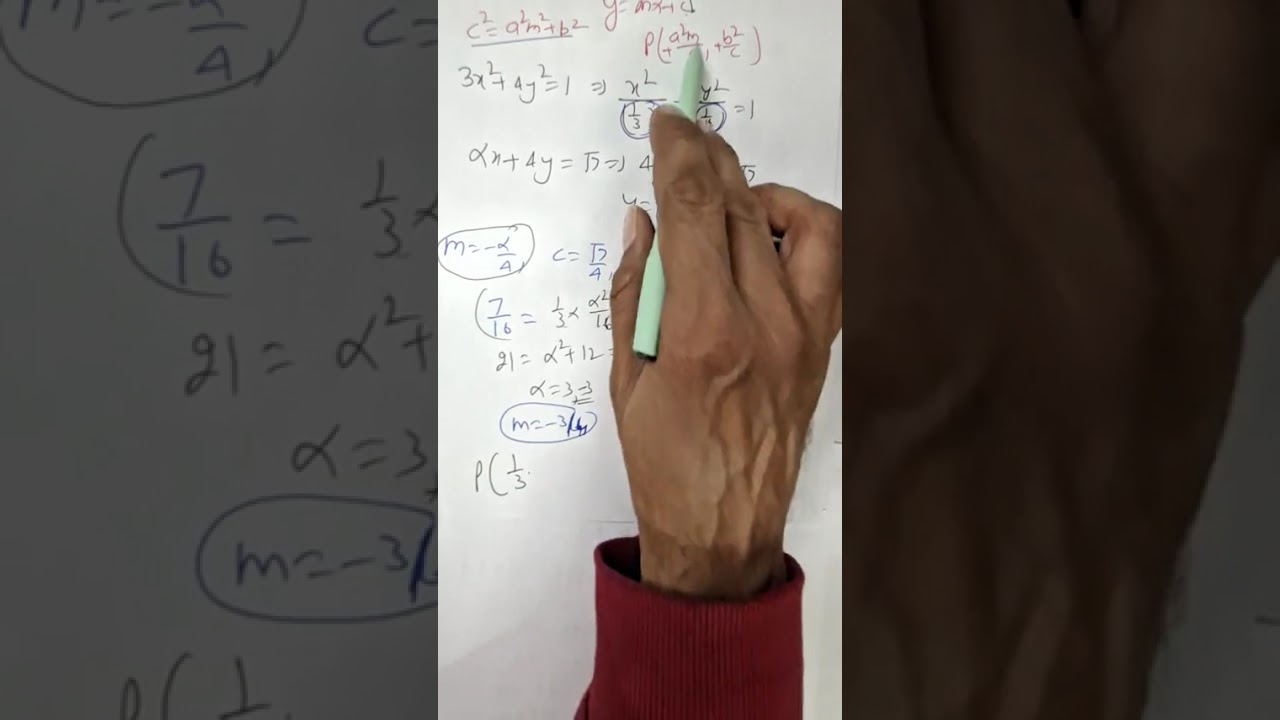 c² = a²m² + b² y = mx + c
P(± a²m/c, ± b²/c)
3x² + 4y² = 1 ⇒ x²/(1/3) y²/(1/4) = 1
αx + 4y = √7 ⇒ 4 √7
y =
m = -α/4, c = √7/4,
7/16 = 1/3 × α²/16
21 = α² + 12 =
α = 3, -3
m = -3/4
P(1/3